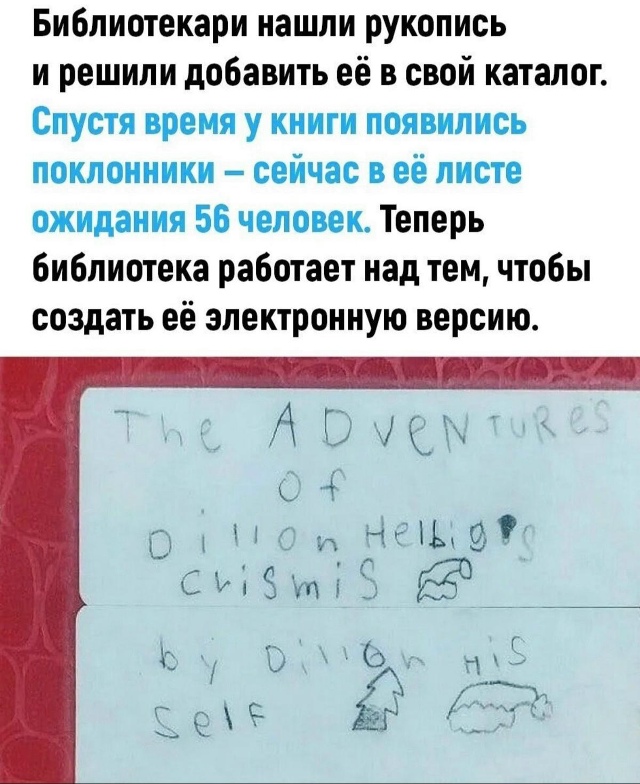 Библиотекари нашли рукопись
и решили добавить её в свой каталог.
Спустя время у книги появились
поклонники – сейчас в её листе
ожидания 56 человек. Теперь
библиотека работает над тем, чтобы
создать её электронную версию.
The ADVeNTuReS
of
Dillon Helbig's
crismis
by Dillon His
Self